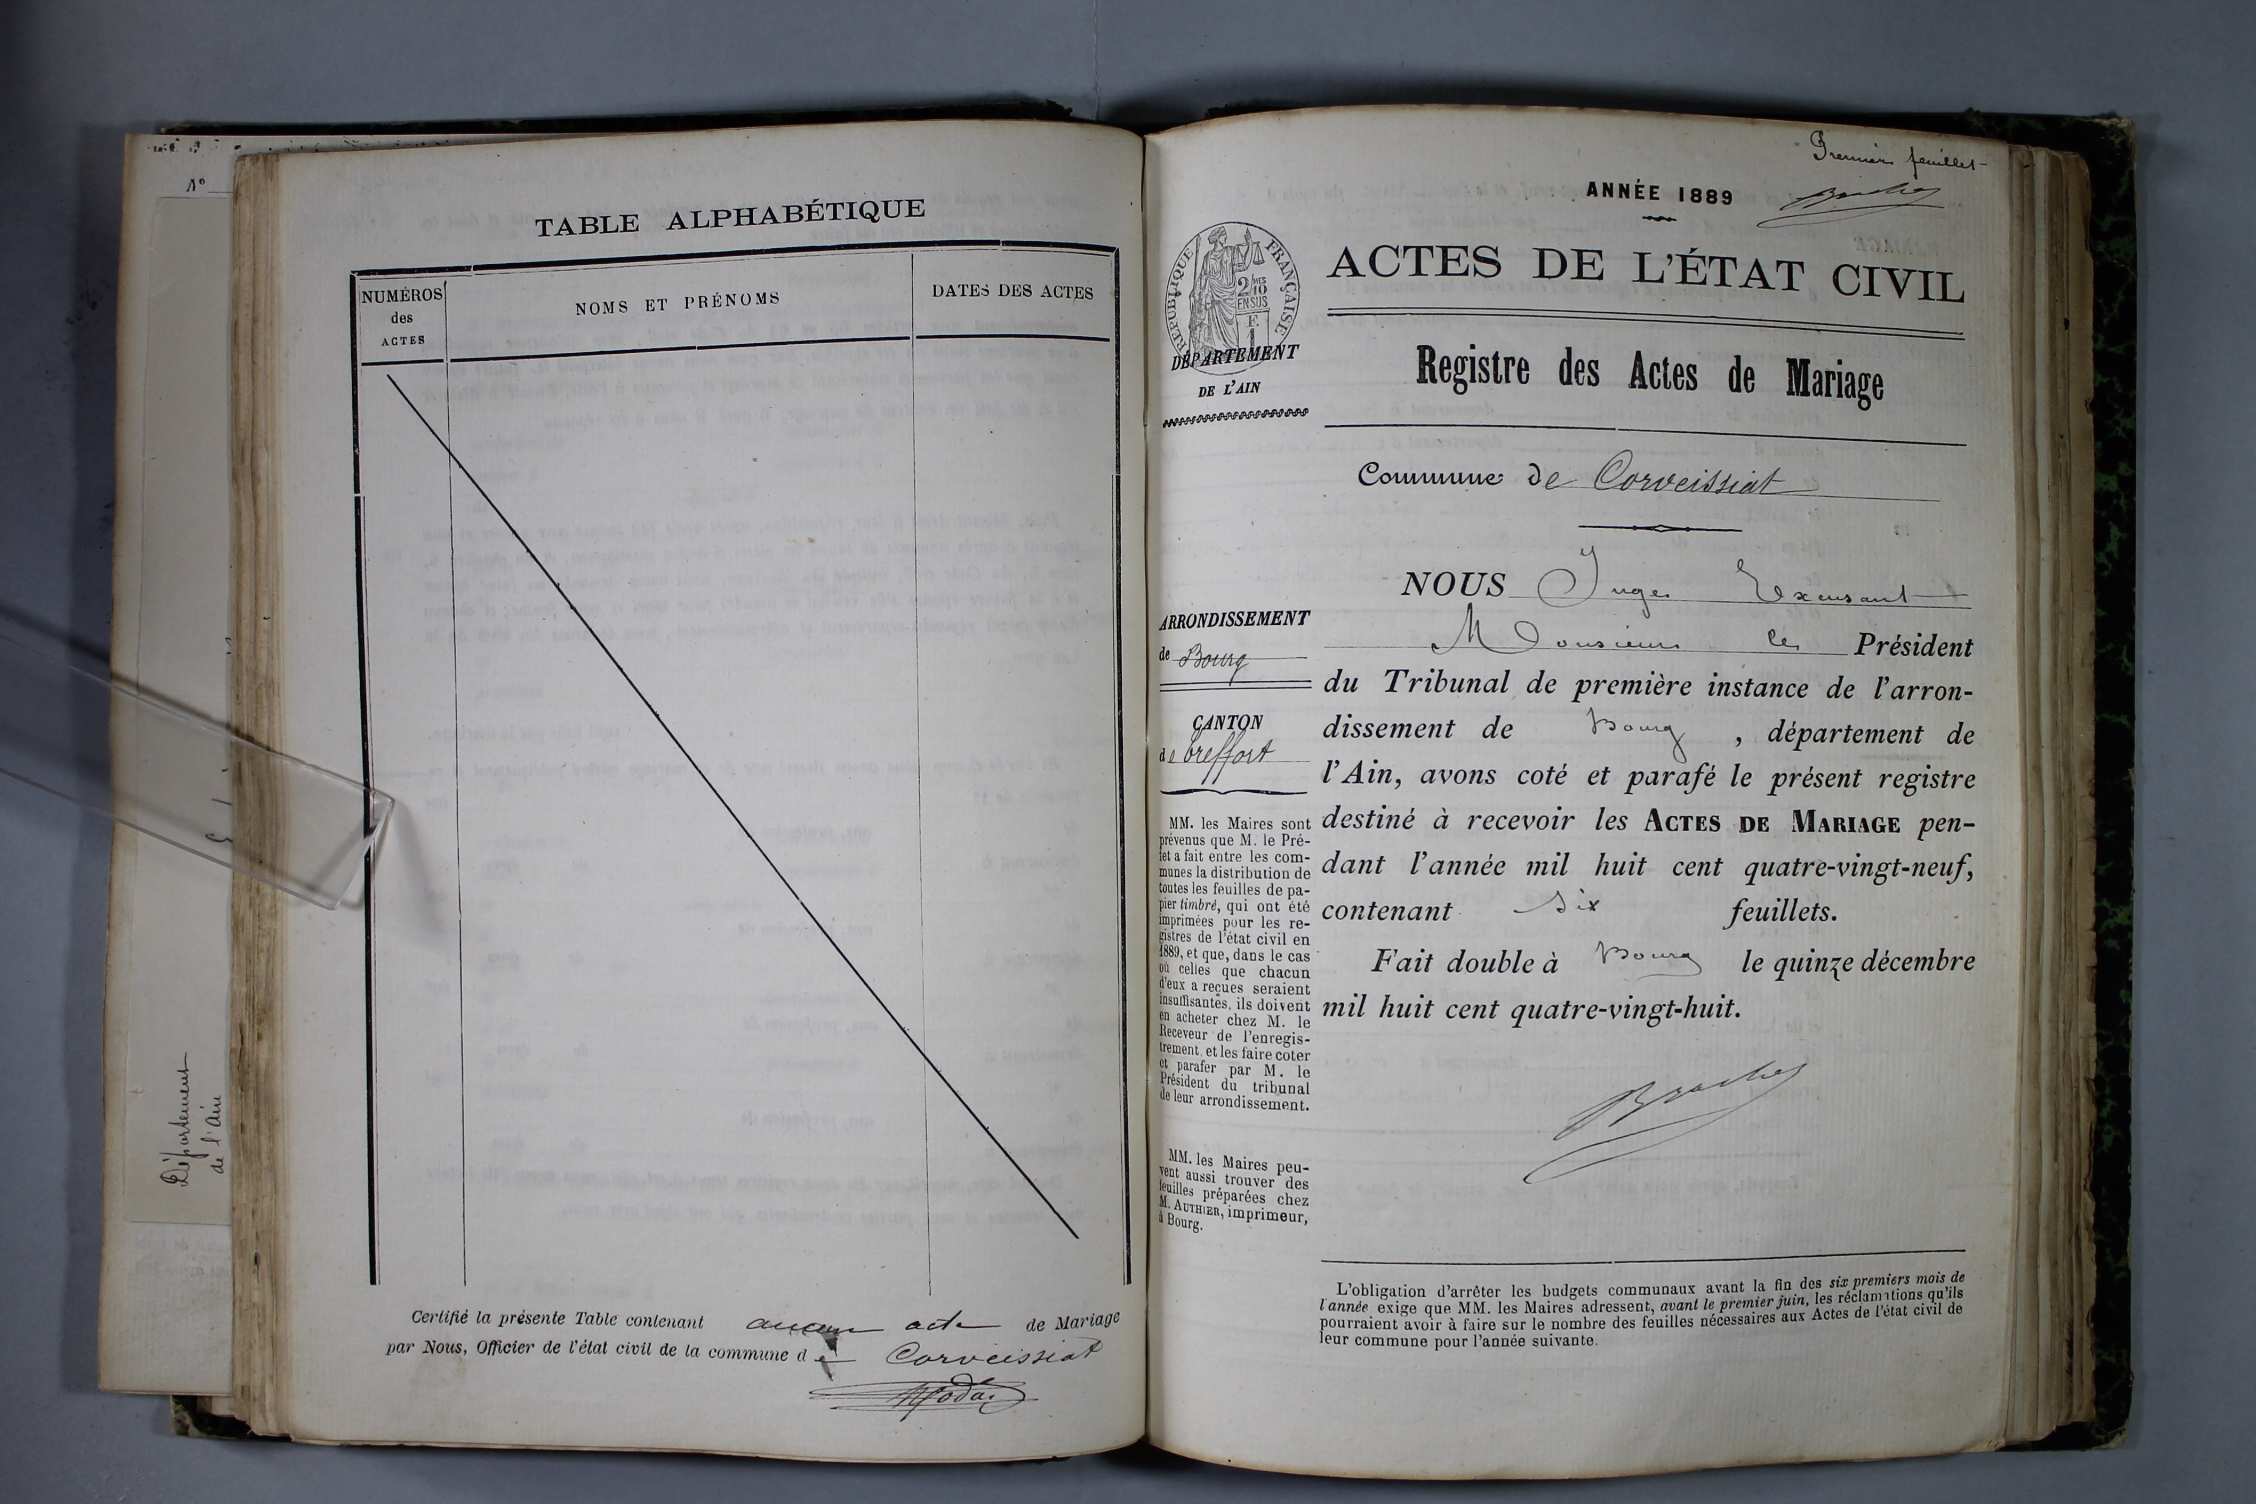 N°
Département
de l'Ain
TABLE ALPHABÉTIQUE
NUMÉROS
des
ACTES
NOMS ET PRÉNOMS
DATES DES ACTES
Certifié la présente Table contenant aucun acte de Mariage
par Nous, Officier de l'état civil de la commune de Corveissiat
Premier feuillet
ANNÉE 1889
RÉPUBLIQUE FRANÇAISE
2 MES
10
EN SUS
F.
1
DÉPARTEMENT
DE L'AIN
ACTES DE L'ÉTAT CIVIL
Registre des Actes de Mariage
Commune de Corveissiat
ARRONDISSEMENT
de Bourg
CANTON
de Ceffort
MM. les Maires sont
prévenus que M. le Pré-
fet a fait entre les com-
munes la distribution de
toutes les feuilles de pa-
pier timbré, qui ont été
imprimées pour les re-
gistres de l'état civil en
1889, et que, dans le cas
où celles que chacun
d'eux a reçues seraient
insuffisantes, ils doivent
en acheter chez M. le
Receveur de l'enregis-
trement, et les faire coter
et parafer par M. le
Président du tribunal
de leur arrondissement.
MM. les Maires peu-
vent aussi trouver des
feuilles préparées chez
M. AUTHIER, imprimeur,
à Bourg.
NOUS Juge Excusant
Monsieur le Président
du Tribunal de première instance de l'arron-
dissement de Bourg, département de
l'Ain, avons coté et parafé le présent registre
destiné à recevoir les ACTES DE MARIAGE pen-
dant l'année mil huit cent quatre-vingt-neuf,
contenant six feuillets.
Fait double à Bourg le quinze décembre
mil huit cent quatre-vingt-huit.
L'obligation d'arrêter les budgets communaux avant la fin des six premiers mois de
l'année exige que MM. les Maires adressent, avant le premier juin, les réclamations qu'ils
pourraient avoir à faire sur le nombre des feuilles nécessaires aux Actes de l'état civil de
leur commune pour l'année suivante.